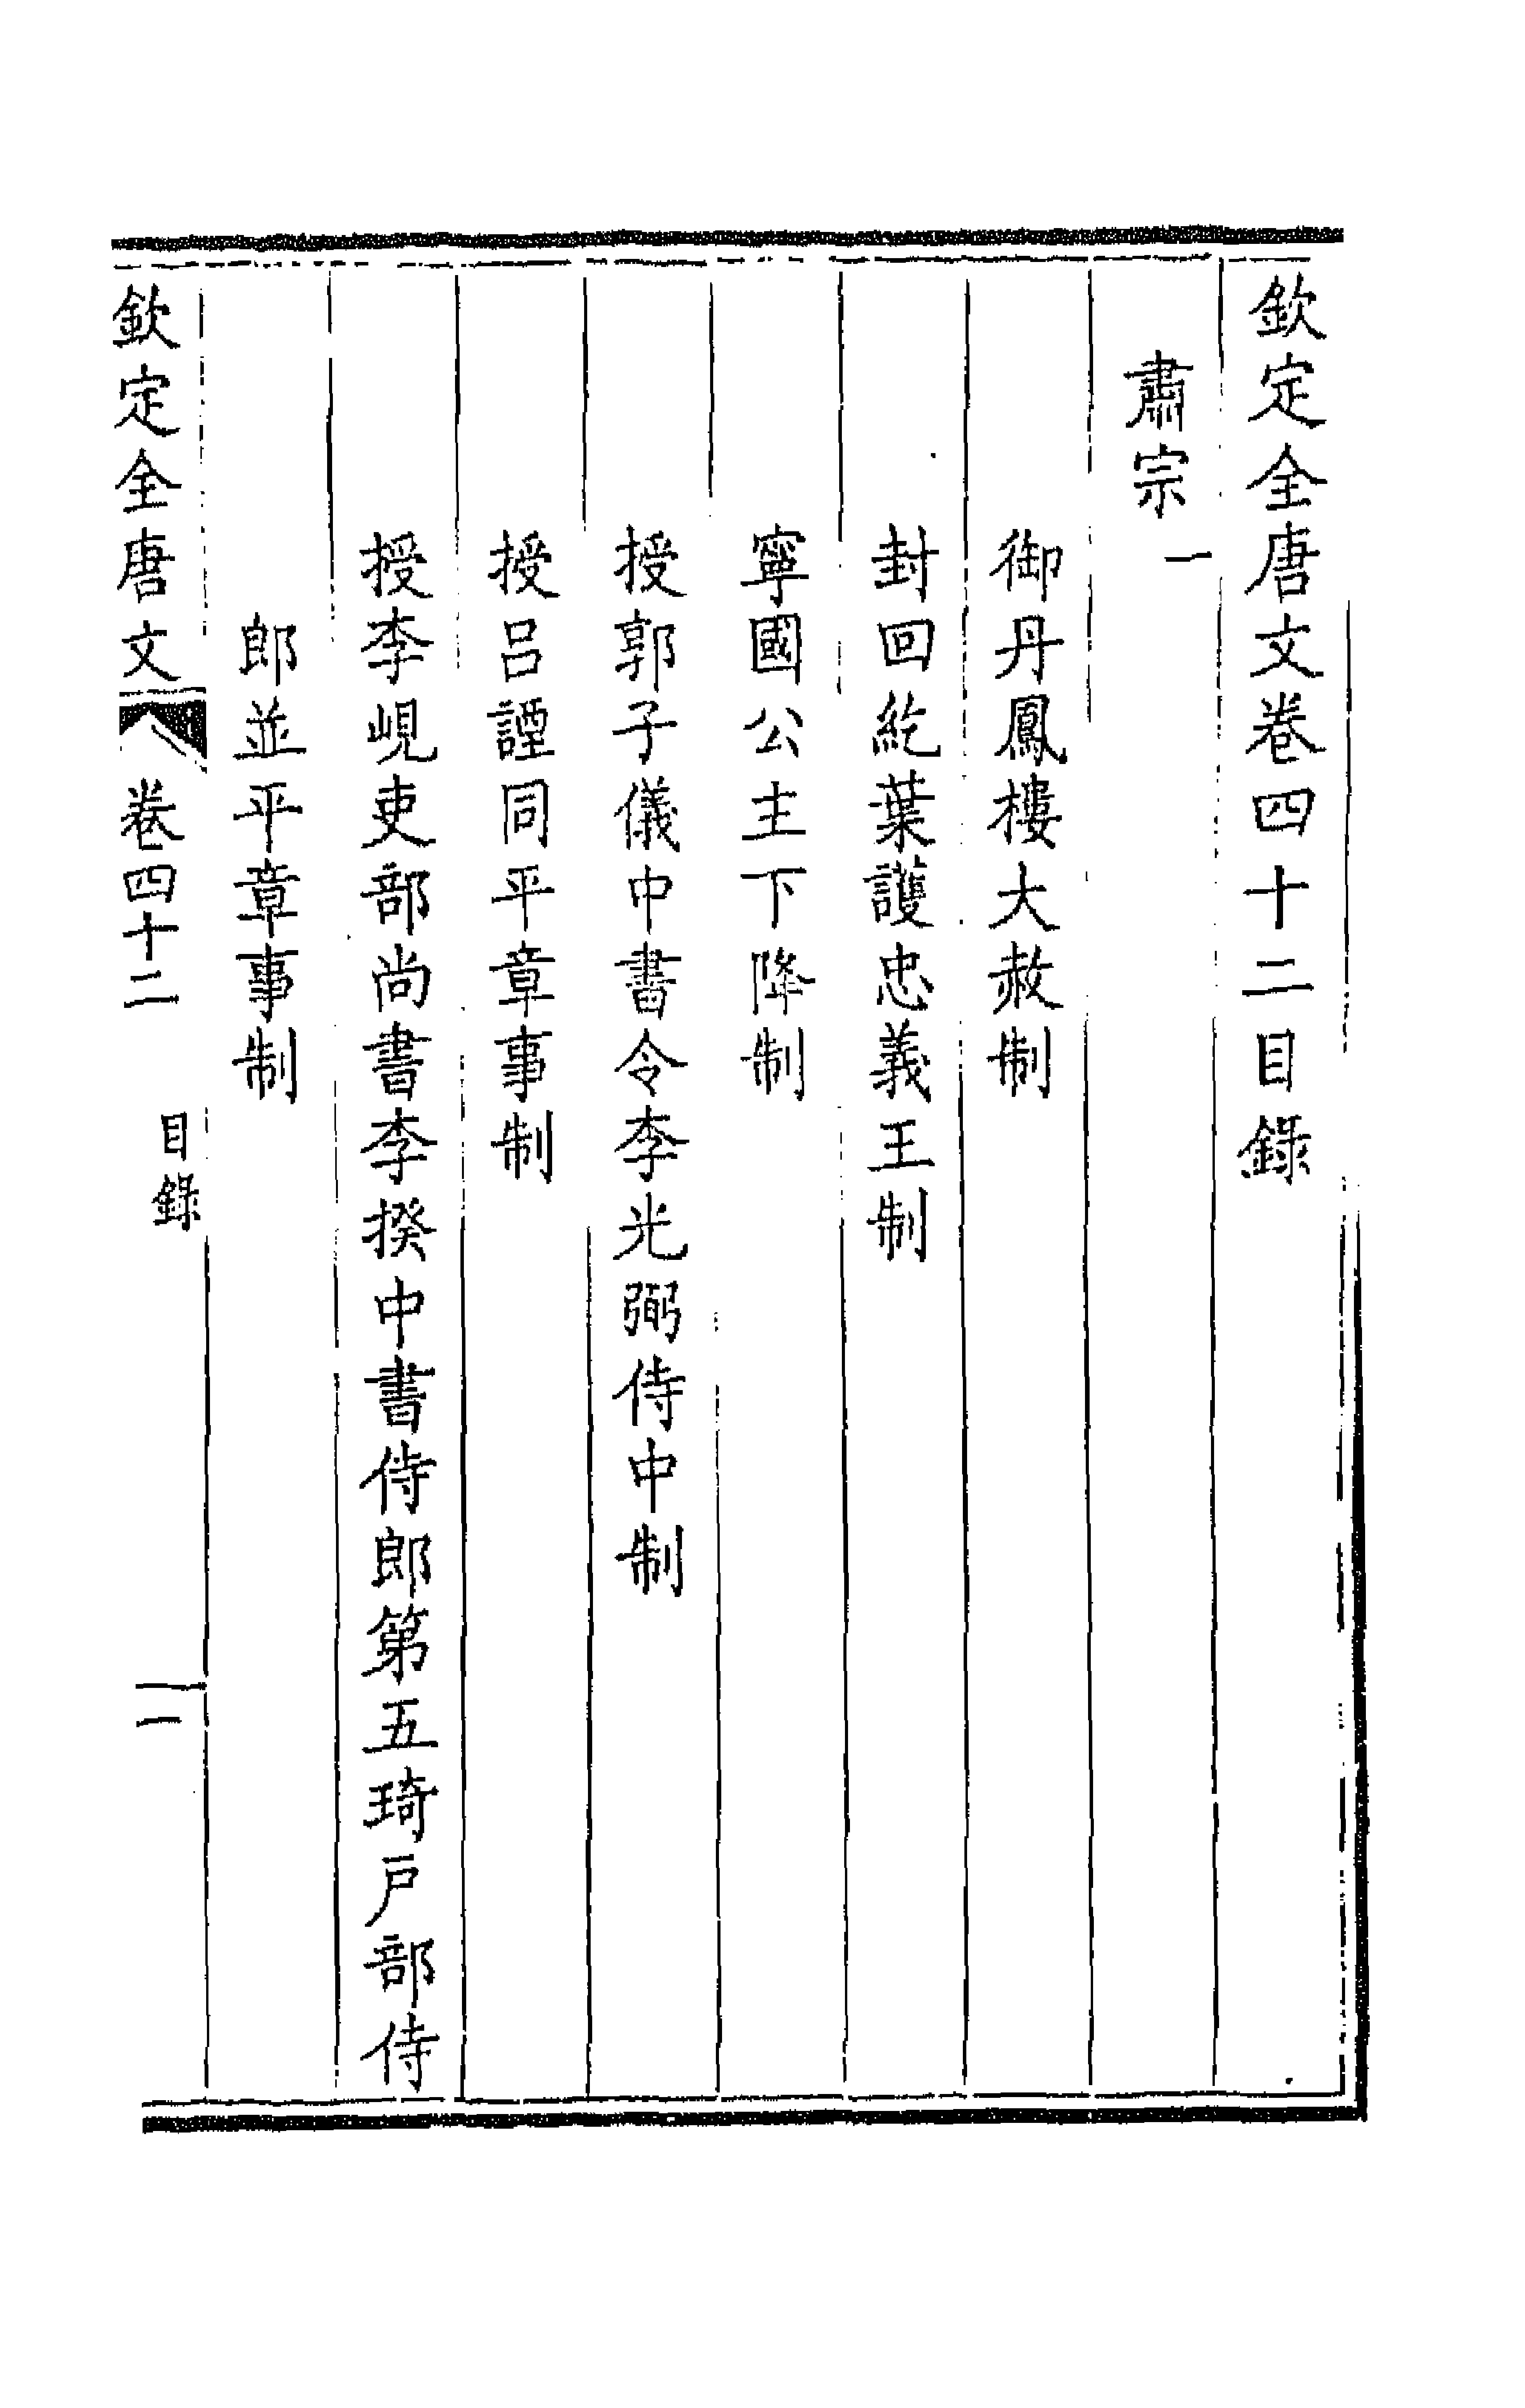 欽定全唐文卷四十二目錄
肅宗一
御丹鳳樓大赦制
封回紇葉護忠義王制
寧國公主下降制
授郭子儀中書令李光弼侍中制
授呂諲同平章事制
授李峴吏部尚書李揆中書侍郎第五琦戶部侍
郎並平章事制
欽定全唐文 卷四十二 目錄 一